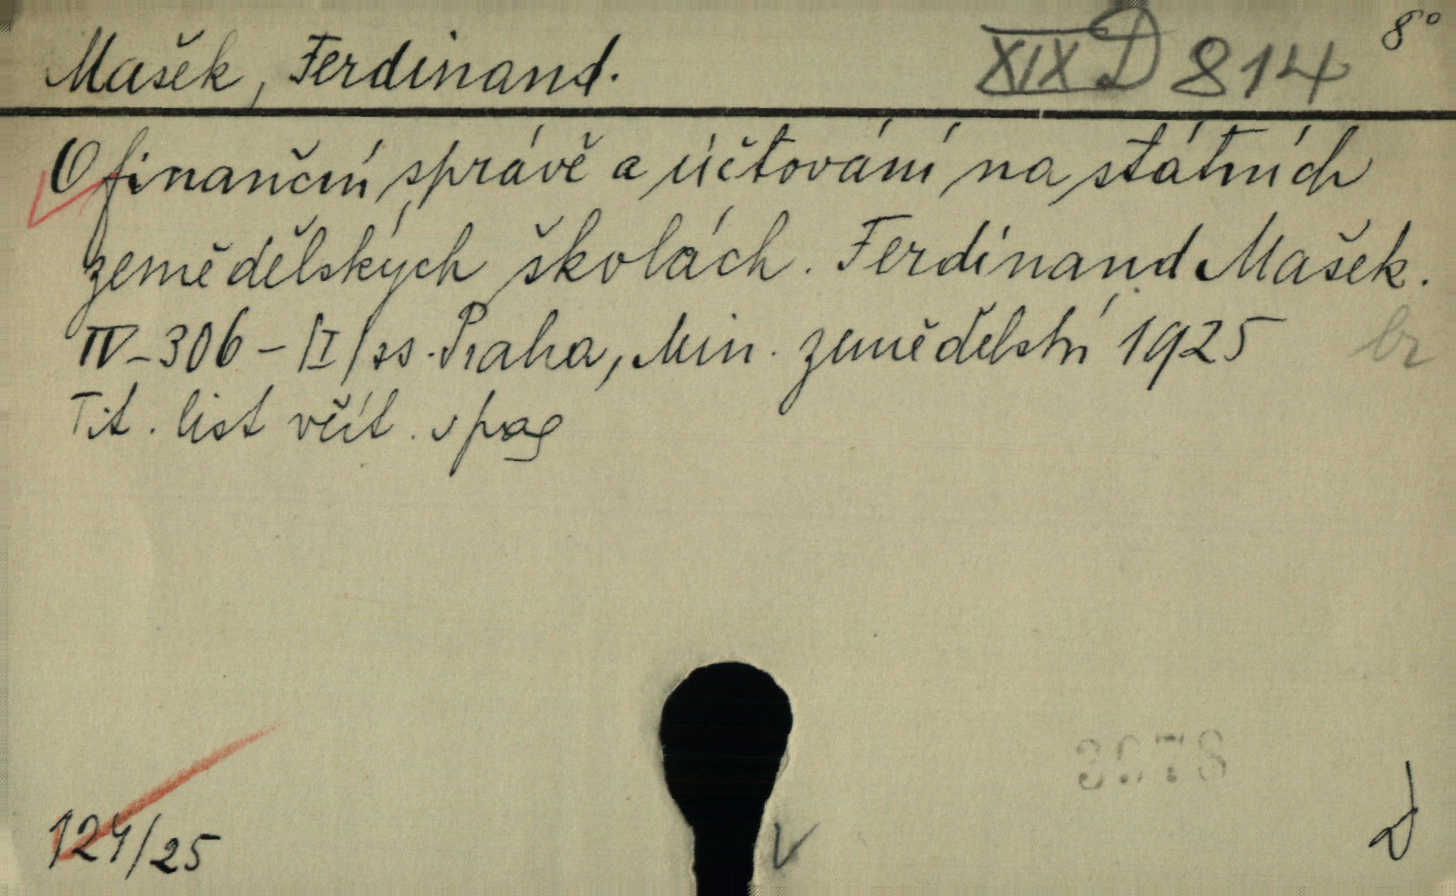 Mašek, Ferdinand. XIX D 814 8°
O finanční správě a účtování na státních
zemědělských školách. Ferdinand Mašek.
IV-306-/I/ ss. Praha, Min. zemědělství 1925 br
Tit. list včít. v pag
124/25